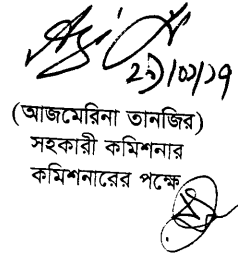 ২৯/০১/১৭
(আজমেরিনা তানজির)
সহকারী কমিশনার
কমিশনারের পক্ষে